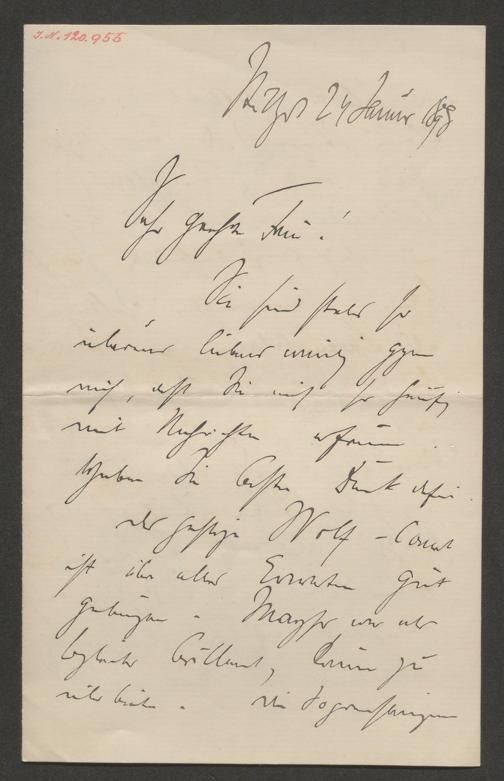 I.N. 120.955
Stuttgart 24 Januar 1898
Sehr geehrte Frau!
Sie sind stets so
überaus liebenswürdig gegen
mich, daß Sie mich so häufig
mit Nachrichten erfreuen.
Haben Sie besten Dank dafür.
Der gestrige Wolf-Concert
ist über alles Erwarten gut
gelungen. war als
Begleiter brillant, kaum zu
überbieten. Die